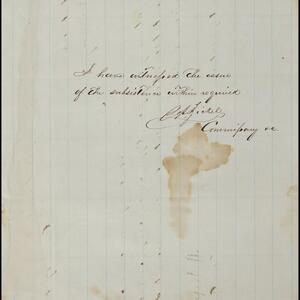 I have witnessed the issue
of the subsistence within required
Commissary &c